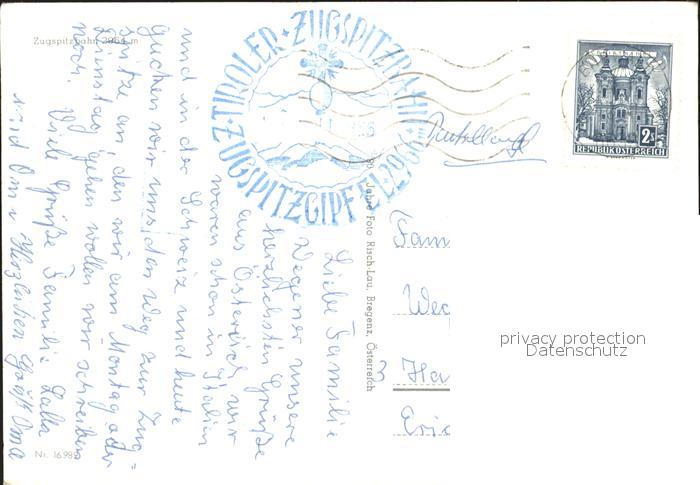 Zugspitzbahn 2964 m
TIROLER ZUGSPITZBAHN
ZUGSPITZGIPFEL 2964 m
2 S
REPUBLIK ÖSTERREICH
Deutschland
Liebe Familie
Wegener unsere
herzlichsten Grüße
aus Österreich, wir
waren schon in Italien
und in der Schweiz und heute
guchen wir uns den Weg zur Zug=
spitze an, den wir am Montag oder
Dienstag gehen wollen wir schreiben
noch. Viele Grüße Familie Lalla
und Om u Herzlichen Grüße Oma
Jahre Foto Risch-Lau, Bregenz, Österreich
Fam
Weg
3 Ha
Nr. 16982
privacy protection
Datenschutz